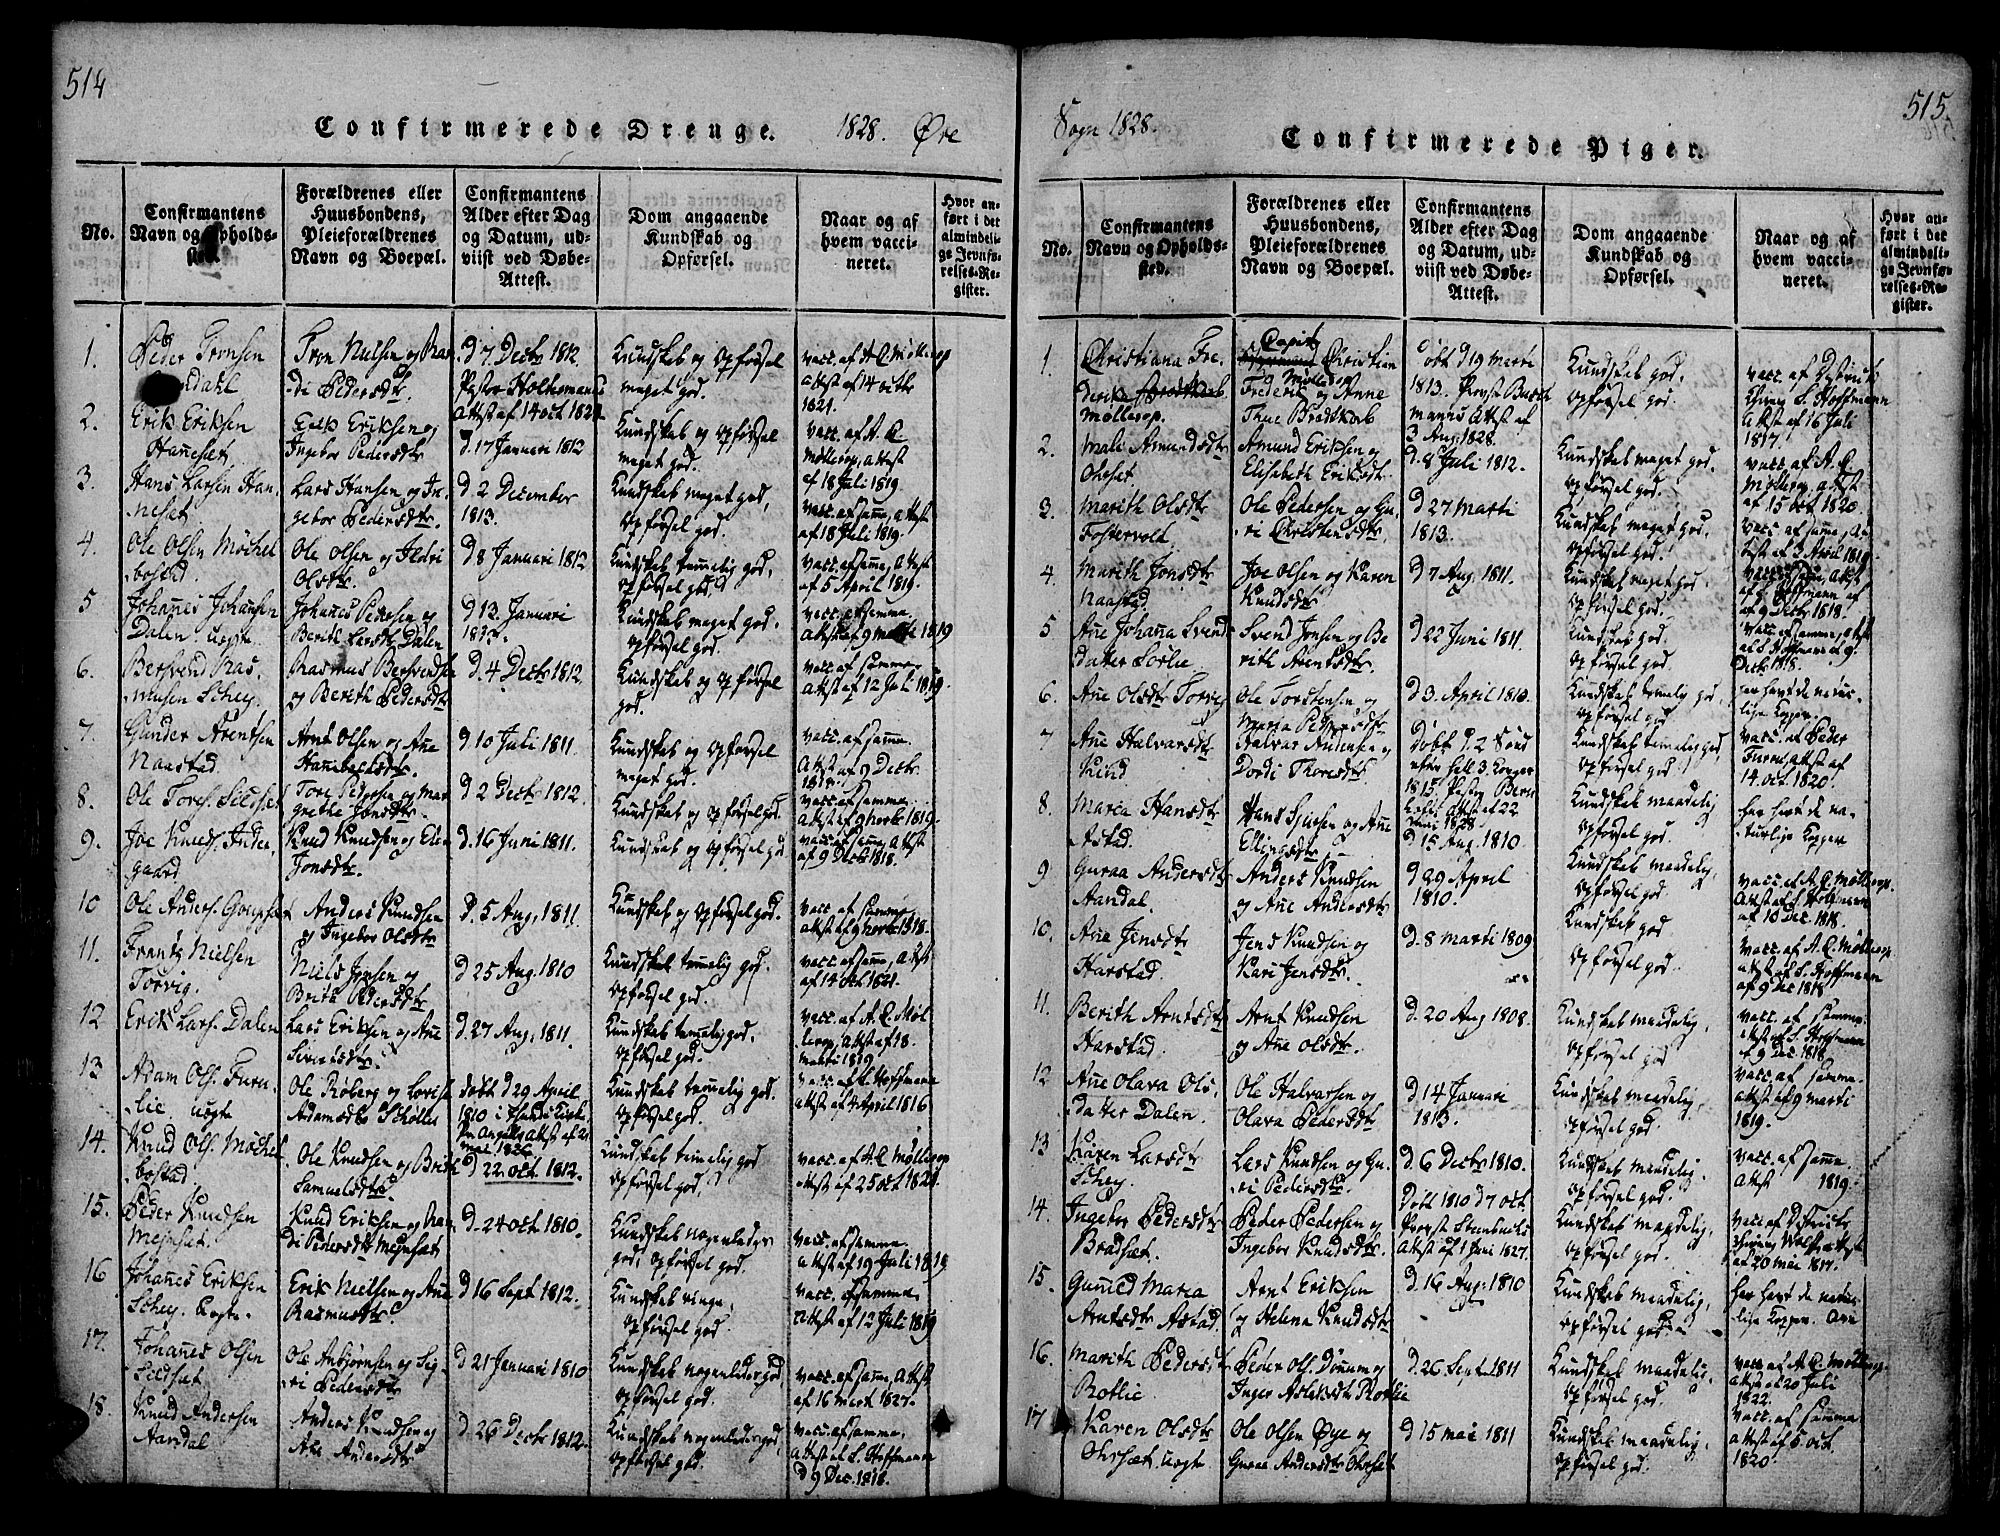 514
Confirmerede Drenge. 1828. Øre
No.
Confirmantens Navn og Opholds-
Forældrenes eller Huusbondens, Pleieforældrenes Navn og Boepæl.
Confirmantens Alder efter Dag og Datum, udviist ved Døbe-Attest.
Dom angaaende Kundskab og Opførsel.
Naar og af hvem vaccineret.
Hvor anført i det almindelige Jevnførelses-Register.
1. Peder Tronsen
Tron Nielsen og
di Pedersdtr.
d 7 Decbr 1812
Attest af 14 oct 1821
Kundskab og Opførsel
meget god.
vacc. af A. C. Møllerop
attest af 14 octbr
1821.
2. Erik Eriksen
Hanneset
Erik Eriksen og
Ingebor Pedersdtr
d. 17 Januari 1812
Kundskab og Opførsel
meget god.
vacc. af A. C
Møllerop, attest
af 18 Juli 1819
3. Hans Larsen Han-
neset
Lars Hansen og In-
gebor Pedersdtr
d 2 December
1813.
Kundskab meget god,
Opførsel god.
vacc. af samme, attest
af 18 Juli 1819.
4. Ole Olsen Møchel
bostad.
Ole Olsen og Ildri
Olsdtr
d 8 Januari 1812
Kundskab temmelig god,
opførsel god
vacc. af samme, attest
af 5 April 1819.
5 Johannes Johansen
Dalen uægte
Johannes Pedersen og
Berith Larsdtr Dalen
d 13 Januari
Kundskab meget god
opførsel god.
vacc. af samme
attest af 9 marts 1819
6. Bersvend Ras-
musen Schey
Rasmus Bersvendsen
og Berith Pedersdtr
d. 4 Decbr 1812
Kundskab og opførsel
god.
vacc. af samme
attest af 12 Juli 1819.
7. Gunder Arentsen
Naastad.
Arnt Olsen og Ane
d 10 Juli 1811.
Kundskab og opførsel
meget god.
vacc. af samme.
attest af 9 Decbr
8. Ole Tores. Sildset
Tore Pedersen og Mar-
grethe Jonsdtr.
d 2 Decbr 1812.
Kundskab og opførsel god.
vacc. af samme
attest af 9 novbr 1819.
9. Joe Knuds. Inder-
gaard
Knud Knudsen og
Jonsdtr.
d. 16 Juni 1811.
Kundskab og opførsel god
vacc. af samme, attest
af 9 Decbr 1818.
10 Ole Anders.
Anders Knudsen
og Ingebor Olsdtr
d. 5 Aug. 1811
Kundskab og opførsel god.
vacc. af samme
attest af 9 novbr 1818.
11. Frantz Nielsen
Torvig.
Niels Jonsen og
Brith Pedersdtr
d 25 Aug. 1810
Kundskab temmelig god.
opførsel god.
vacc. af samme, attest
af 14 oct 1821.
12 Erik Lars. Dalen
Lars Eriksen og Ane
Sivertsdtr.
d. 27 Aug. 1811.
Kundskab temmelig god.
opførsel god.
vacc. af A. C. Møl-
lerop, attest af 18.
marti 1819
13 Adam Ols. Furu-
lie. uægte
Ole Røberg og Lovise
Adamsdtr Schølles
døbt d 29 April
1810
Kundskab temmelig god.
opførsel god.
Hoffmann
attest af 4 April 1816
14. Knud Ols. Møchel
bostad,
Ole Knudsen og Brith
Samuelsdtr
d 22 oct 1812.
Kundskab temmelig god
opførsel god,
vacc. af A. C Møllerop
attest af 25 oct 1821.
15. Peder Knudsen
Mejnset.
Knud Eriksen og
di Pedersdtr Mejnset
d. 24 oct 1810.
Kundskab nogenledes
god, opførsel god.
vacc. af samme.
attest af 19 Juli 1819
16 Johannes Eriksen
Schey. uægte.
Erik Nielsen og Ane
Rasmusdtr.
d 16 Sept 1812.
Kundskab ringe,
opførsel god.
vacc. af samme,
attest af 12 Juli 1819
17. Johannes Olsen
Sildset
Ole Anbjørnsen og Sig-
ri Pedersdtr
d 21 Januari 1810
Kundskab nogenledes god,
opførsel god.
vacc. af samme, attest
af 16 mart 1827.
18. Knud Andersen
Aandal
Anders Knudsen og
Ane Andersdtr
d. 26 Decbr 1812.
Kundskab nogenledes god,
opførsel god.
vacc. af samme,
attest af S. Hoffmann
d 9 Dec. 1818.
515.
Sogn 1828.
Confirmerede Piger.
No.
Confirmantens Navn og Opholds-sted.
Forældrenes eller Huusbondens, Pleieforældrenes Navn og Boepæl.
Confirmantens Alder efter Dag og Datum, udviist ved Døbe-Attest.
Dom angaaende Kundskab og Opførsel.
Naar og af hvem vaccineret.
Hvor anført i det almindelige Jevnførelses-Register.
1. Christiana Fre-
derika
Møllerop.
Capit
Christian
Frederik Møllerop og Anne
Thue Bredtkorb
døbt d 19 marti
1813. Provst
manns attest af
3 Aug. 1828.
Kundskab god.
opførsel god.
vacc. af
S. Hoffmann
attest af 16 Juli
1817.
2. Mali Amundsdtr
Oleset
Amund Eriksen og
Elisabeth Eriksdtr
d. 8 Juli 1812.
Kundskab meget god.
opførsel god.
vacc. af A. C
Møllerop, attest
af 15 oct 1820.
3. Marith Olsdtr
Fostervold
Ole Pedersen og Gu-
ri Christensdtr.
d 27 Marti
1813.
Kundskab meget god,
opførsel god.
vacc. af samme, at-
test af 3 April 1819.
4 Marith Jonsdtr
Naastad.
Joe Olsen og Karen
Knudsdtr
d 7 Aug. 1811.
Kundskab meget god
opførsel god.
vacc. af samme, attest
af S. Hoffmann af
9 Decbr 1818.
5 Ane Johanna Svends
datter Sørlie
Svend Jonsen og Be-
rith Arentsdtr.
d 22 Juni 1811.
Kundskab god
opførsel god.
vacc. af samme, attest
af S Hoffmann af 9.
Decbr 1818.
6. Ane Olsdtr Torvig
Ole Torstensen og
Maria Pedersdtr
d 3. April 1810.
Kundskab temmelig god,
opførsel god
har havt de natur-
lige Kopper.
7 Ane Halvorsdtr
Halvor Andersen og
Dordi Thoresdtr
Døbt d. 2 Sønd
1815. Pastor
attest af 22
Juni 1828
Kundskab temmelig god,
opførsel god.
vacc. af Peder
Furu, attest af
14. oct. 1820.
8. Maria Hansdtr
Astad.
Hans Sjursen og Ane
Ellingsdtr
d 15 Aug. 1810
Kundskab maadelig
opførsel god.
har havt de na-
turlige Kopper
9 Guraa Andersdtr
Aandal.
Anders Knudsen
og Ane Andersdtr
d 29 April
1810.
Kundskab maadelig,
opførsel god.
vacc. af A. C Møllerop.
attest af S. Hoffmann
af 10 Dec. 1818.
10. Ane Jensdtr
Harstad.
Jens Knudsen og
Kari Jensdtr.
d. 8 marti 1809
Kundskab god
opførsel god.
vacc. af A. C. Møllerop
attest af S. Hoffmann
af 9 Dec 1818
11. Berith Arntsdtr
Harstad.
Arnt Knudsen
og Ane Olsdtr.
d. 20 Aug 1808.
Kundskab maadelig,
opførsel god
vacc. af samme.
attest af S. Hoffmann
af 9 Dec. 1818
12 Ane Olava Ols-
datter Dalen
Ole Halvorsen og
Olava Pedersdtr
d 14 Januari
1813.
Kundskab maadelig,
opførsel god.
vacc. af samme.
attest af 9 marti
1819.
13 Karen Larsdtr
Schey.
Lars Knudsen og Gu-
ri Pedersdtr.
d. 6 Decbr 1810.
Kundskab maadelig.
opførsel god.
vacc. af samme.
attest 1819.
14. Ingebor Pedersdtr
Bradset.
Peder Pedersen og
Ingebor Knudsdtr.
Døbt 1810 d 7 oct
Provst
attest af 1 Juni 1827.
Kundskab maadelig,
opførsel god.
vacc. af Districts
af 20 mai 1817.
15. Gunild Maria
Arntsdtr Astad.
Arnt Eriksen
og Helena Knudsdtr
d. 16 Aug. 1810
Kundskab maadelig,
opførsel god
har havt de natur-
lige Kopper.
16. Marith Pedersdtr
Rotlie.
Peder Ols. Dønum og
Inger Aslaksdtr Rotlie
d. 26 Sept 1811
Kundskab maadelig.
opførsel god.
vacc. af A. C. Møllerop.
attest af 20 Juli
1822.
17 Karen Olsdtr
Orset uægte
Ole Olsen Øye og
Guraa Andersdtr Orset
d 15 mai 1811
Kundskab maadelig,
opførsel god.
vacc. af samme
attest af 5 oct.
1820.